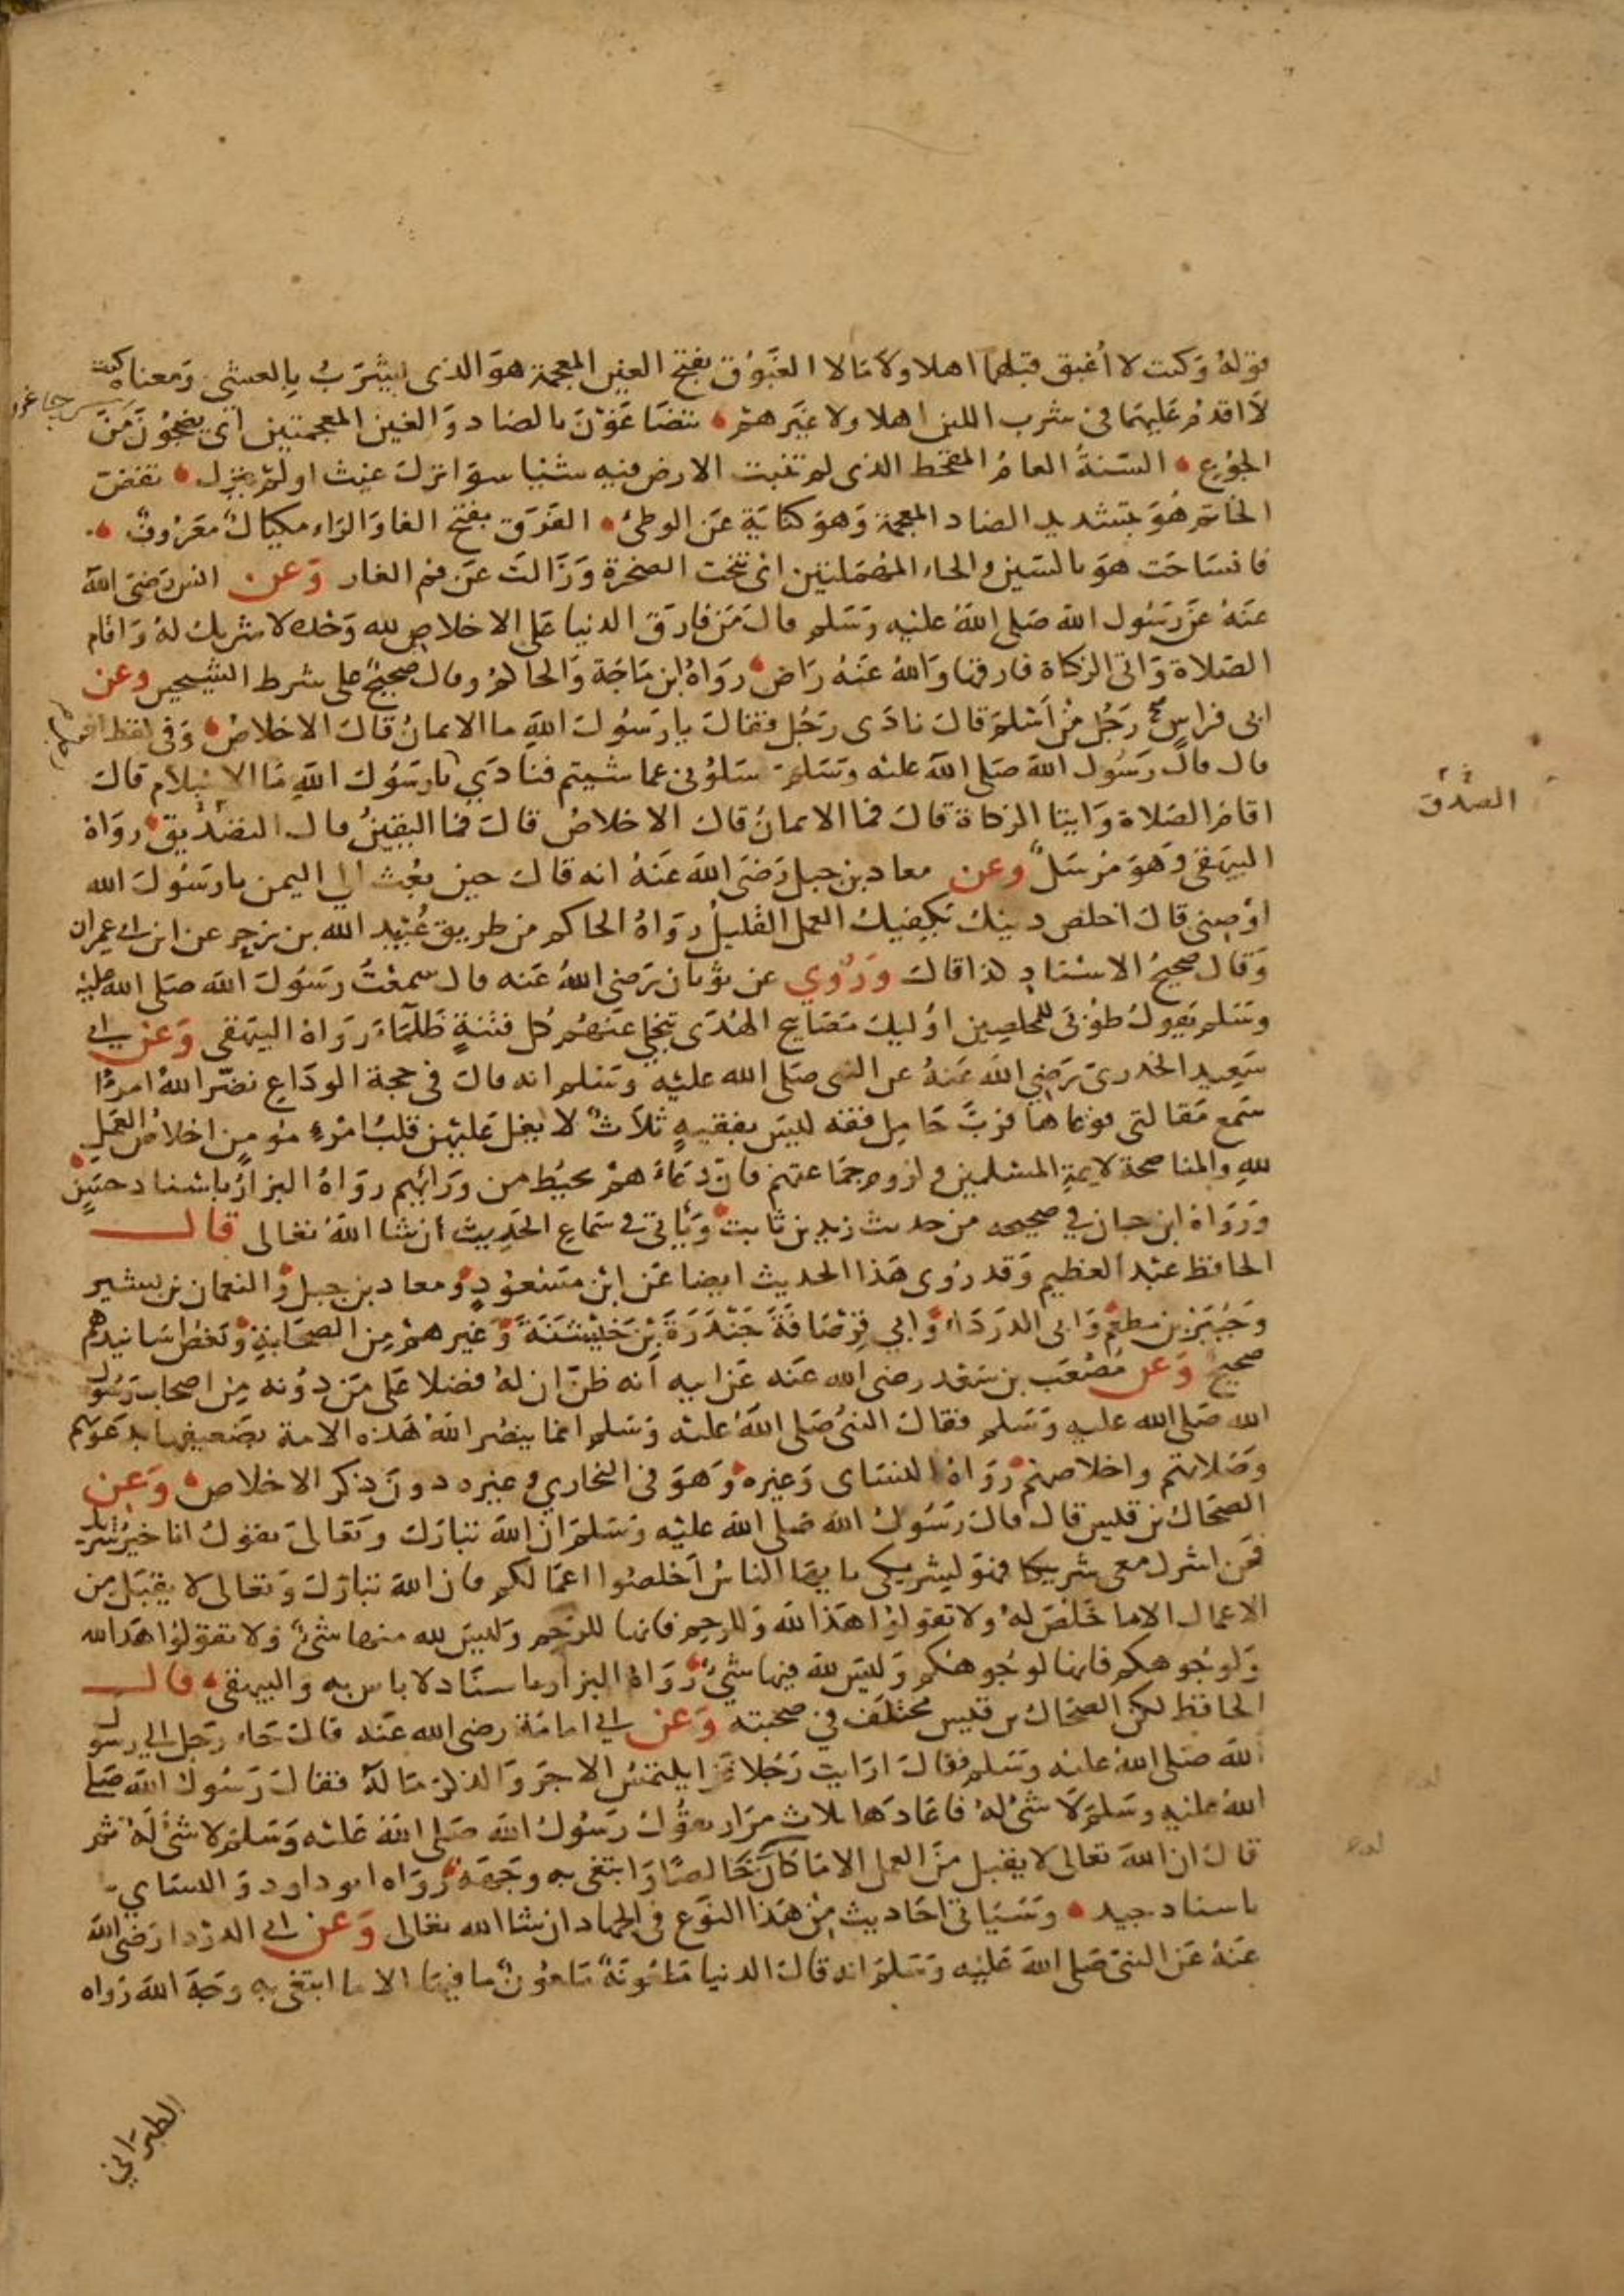 قوله وكنت لا أغبق قبلهما اهلا ولا مالا الغبوق بفتح الغين المعجمة هو الذي يشرب بالعشي ومعناه كنت
لا اقدم عليهما في شرب اللبن اهلا ولا غيرهم يتضاغون بالضاد والغين المعجمتين اي يضجون من
الجوع السنة العام المقحط الذي لم تنبت الارض فيه شيا سوا نزل غيث او لم ينزل تفض
الخاتم هو بتشديد الضاد المعجمة وهو كناية عن الوطئ الفرق بفتح الفا والراء مكيال معروف
فانساحت هو بالسين والحاء المهملتين اي تنحت الصخرة وزالت عن فم الغار وعن انس رضي الله
عنه عن رسول الله صلى الله عليه وسلم قال من فارق الدنيا على الاخلاص لله وحده لا شريك له واقام
الصلاة واتى الزكاة فارقها والله عنه راض رواه ابن ماجة والحاكم وقال صحيح على شرط الشيخين وعن
ابي فراس رجل من اسلم قال نادى رجل فقال يا رسول الله ما الايمان قال الاخلاص وفي لفظ اخر
قال قال رسول الله صلى الله عليه وسلم سلوني عما شيتم فنادي يا رسول الله ما الاسلام قال
اقام الصلاة وايتا الزكاة قال فما الايمان قال الاخلاص قال فما اليقين قال التصديق رواه
الصدق
البيهقي وهو مرسل وعن معاد بن جبل رضي الله عنه انه قال حين بعث الي اليمن يا رسول الله
اوصني قال اخلص دينك يكفيك العمل القليل رواه الحاكم من طريق عبيد الله بن زحر عن ابن ابي عمران
وقال صحيح الاسناد كذا قال وروي عن ثوبان رضي الله عنه قال سمعت رسول الله صلى الله عليه
وسلم يقول طوبى للمخلصين اوليك مصابيح الهدى تنجلي عنهم كل فتنة ظلماء رواه البيهقي وعن ابي
سعيد الخدري رضي الله عنه عن النبي صلى الله عليه وسلم انه قال في حجة الوداع نضر الله امرءا
سمع مقالتي فوعاها فرب حامل فقه ليس بفقيه ثلاث لا يغل عليهن قلب امرء مومن اخلاص العمل
لله والمناصحة لايمة المسلمين ولزوم جماعتهم فان دعاءهم يحيط من ورائهم رواه البزار باسناد حسن
ورواه ابن حبان في صحيحه من حديث زيد بن ثابت وياتي في سماع الحديث ان شا الله تعالى قال
الحافظ عبد العظيم وقد روى هذا الحديث ايضا عن ابن مسعود ومعاد بن جبل والنعمان بن بشير
وجبير بن مطعم وابي الدرداء وابي قرصافة جندرة بن خيشنة وغيرهم من الصحابة وبعض اسانيدهم
صحيح وعن مصعب بن سعد رضي الله عنه عن ابيه انه ظن ان له فضلا على من دونه من اصحاب رسول
الله صلى الله عليه وسلم فقال النبي صلى الله عليه وسلم انما ينصر الله هذه الامة بضعيفها بدعوتهم
وصلاتهم واخلاصهم رواه النساى وغيره وهو في البخاري وغيره دون ذكر الاخلاص وعن
الضحاك بن قيس قال قال رسول الله صلى الله عليه وسلم ان الله تبارك وتعالى يقول انا خير شريك
فمن اشرك معي شريكا فهو لشريكي يا يها الناس اخلصوا اعمالكم فان الله تبارك وتعالى لا يقبل من
الاعمال الا ما خلص له ولا تقولوا هذا لله وللرحم فانها للرحم وليس لله منها شئ ولا تقولوا هذا لله
ولوجوهكم فانها لوجوهكم وليس لله فيها شئ رواه البزار باسناد لا باس به والبيهقي قال
الحافظ لكن الضحاك بن قيس مختلف في صحبته وعن ابي امامة رضي الله عنه قال جاء رجل الى رسول
الله صلى الله عليه وسلم فقال ارايت رجلا غزا يلتمس الاجر والذكر ما له فقال رسول الله صلى
الله عليه وسلم لا شئ له فاعادها ثلاث مرار يقول رسول الله صلى الله عليه وسلم لا شئ له ثم
قال ان الله تعالى لا يقبل من العمل الا ما كان خالصا وابتغي به وجهه رواه ابو داود والنساي
باسناد جيد وسياتي احاديث من هذا النوع في الجهاد ان شا الله تعالى وعن ابي الدردا رضي الله
عنه عن النبي صلى الله عليه وسلم انه قال الدنيا ملعونة ملعون ما فيها الا ما ابتغي به وجه الله رواه
الطبراني